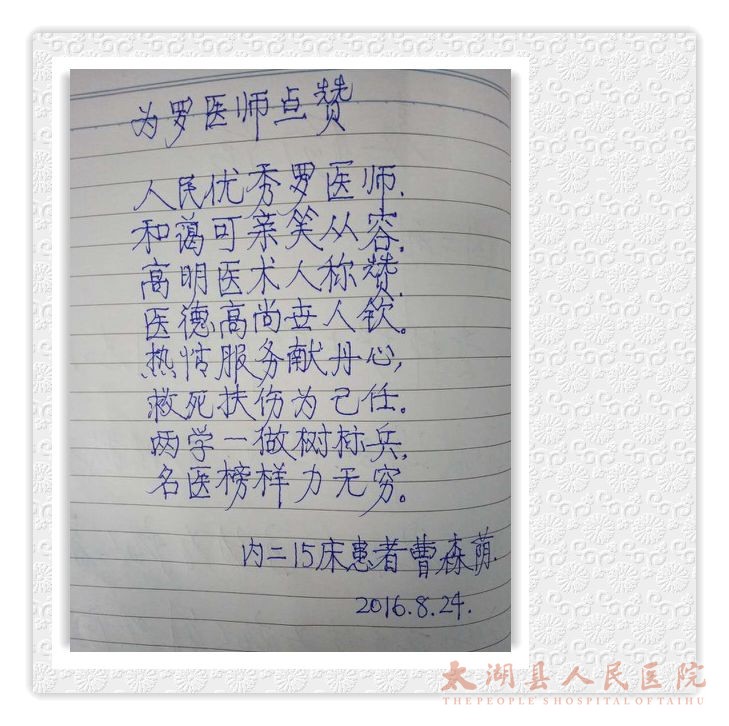 为罗医师点赞
人民优秀罗医师,
和蔼可亲笑从容。
高明医术人称赞,
医德高尚世人钦。
热情服务献丹心,
救死扶伤为己任。
两学一做树标兵,
名医榜样力无穷。
内二15床患者曹森荫.
2016.8.24.
太湖县人民医院
THE PEOPLE'S HOSPITAL OF TAIHU